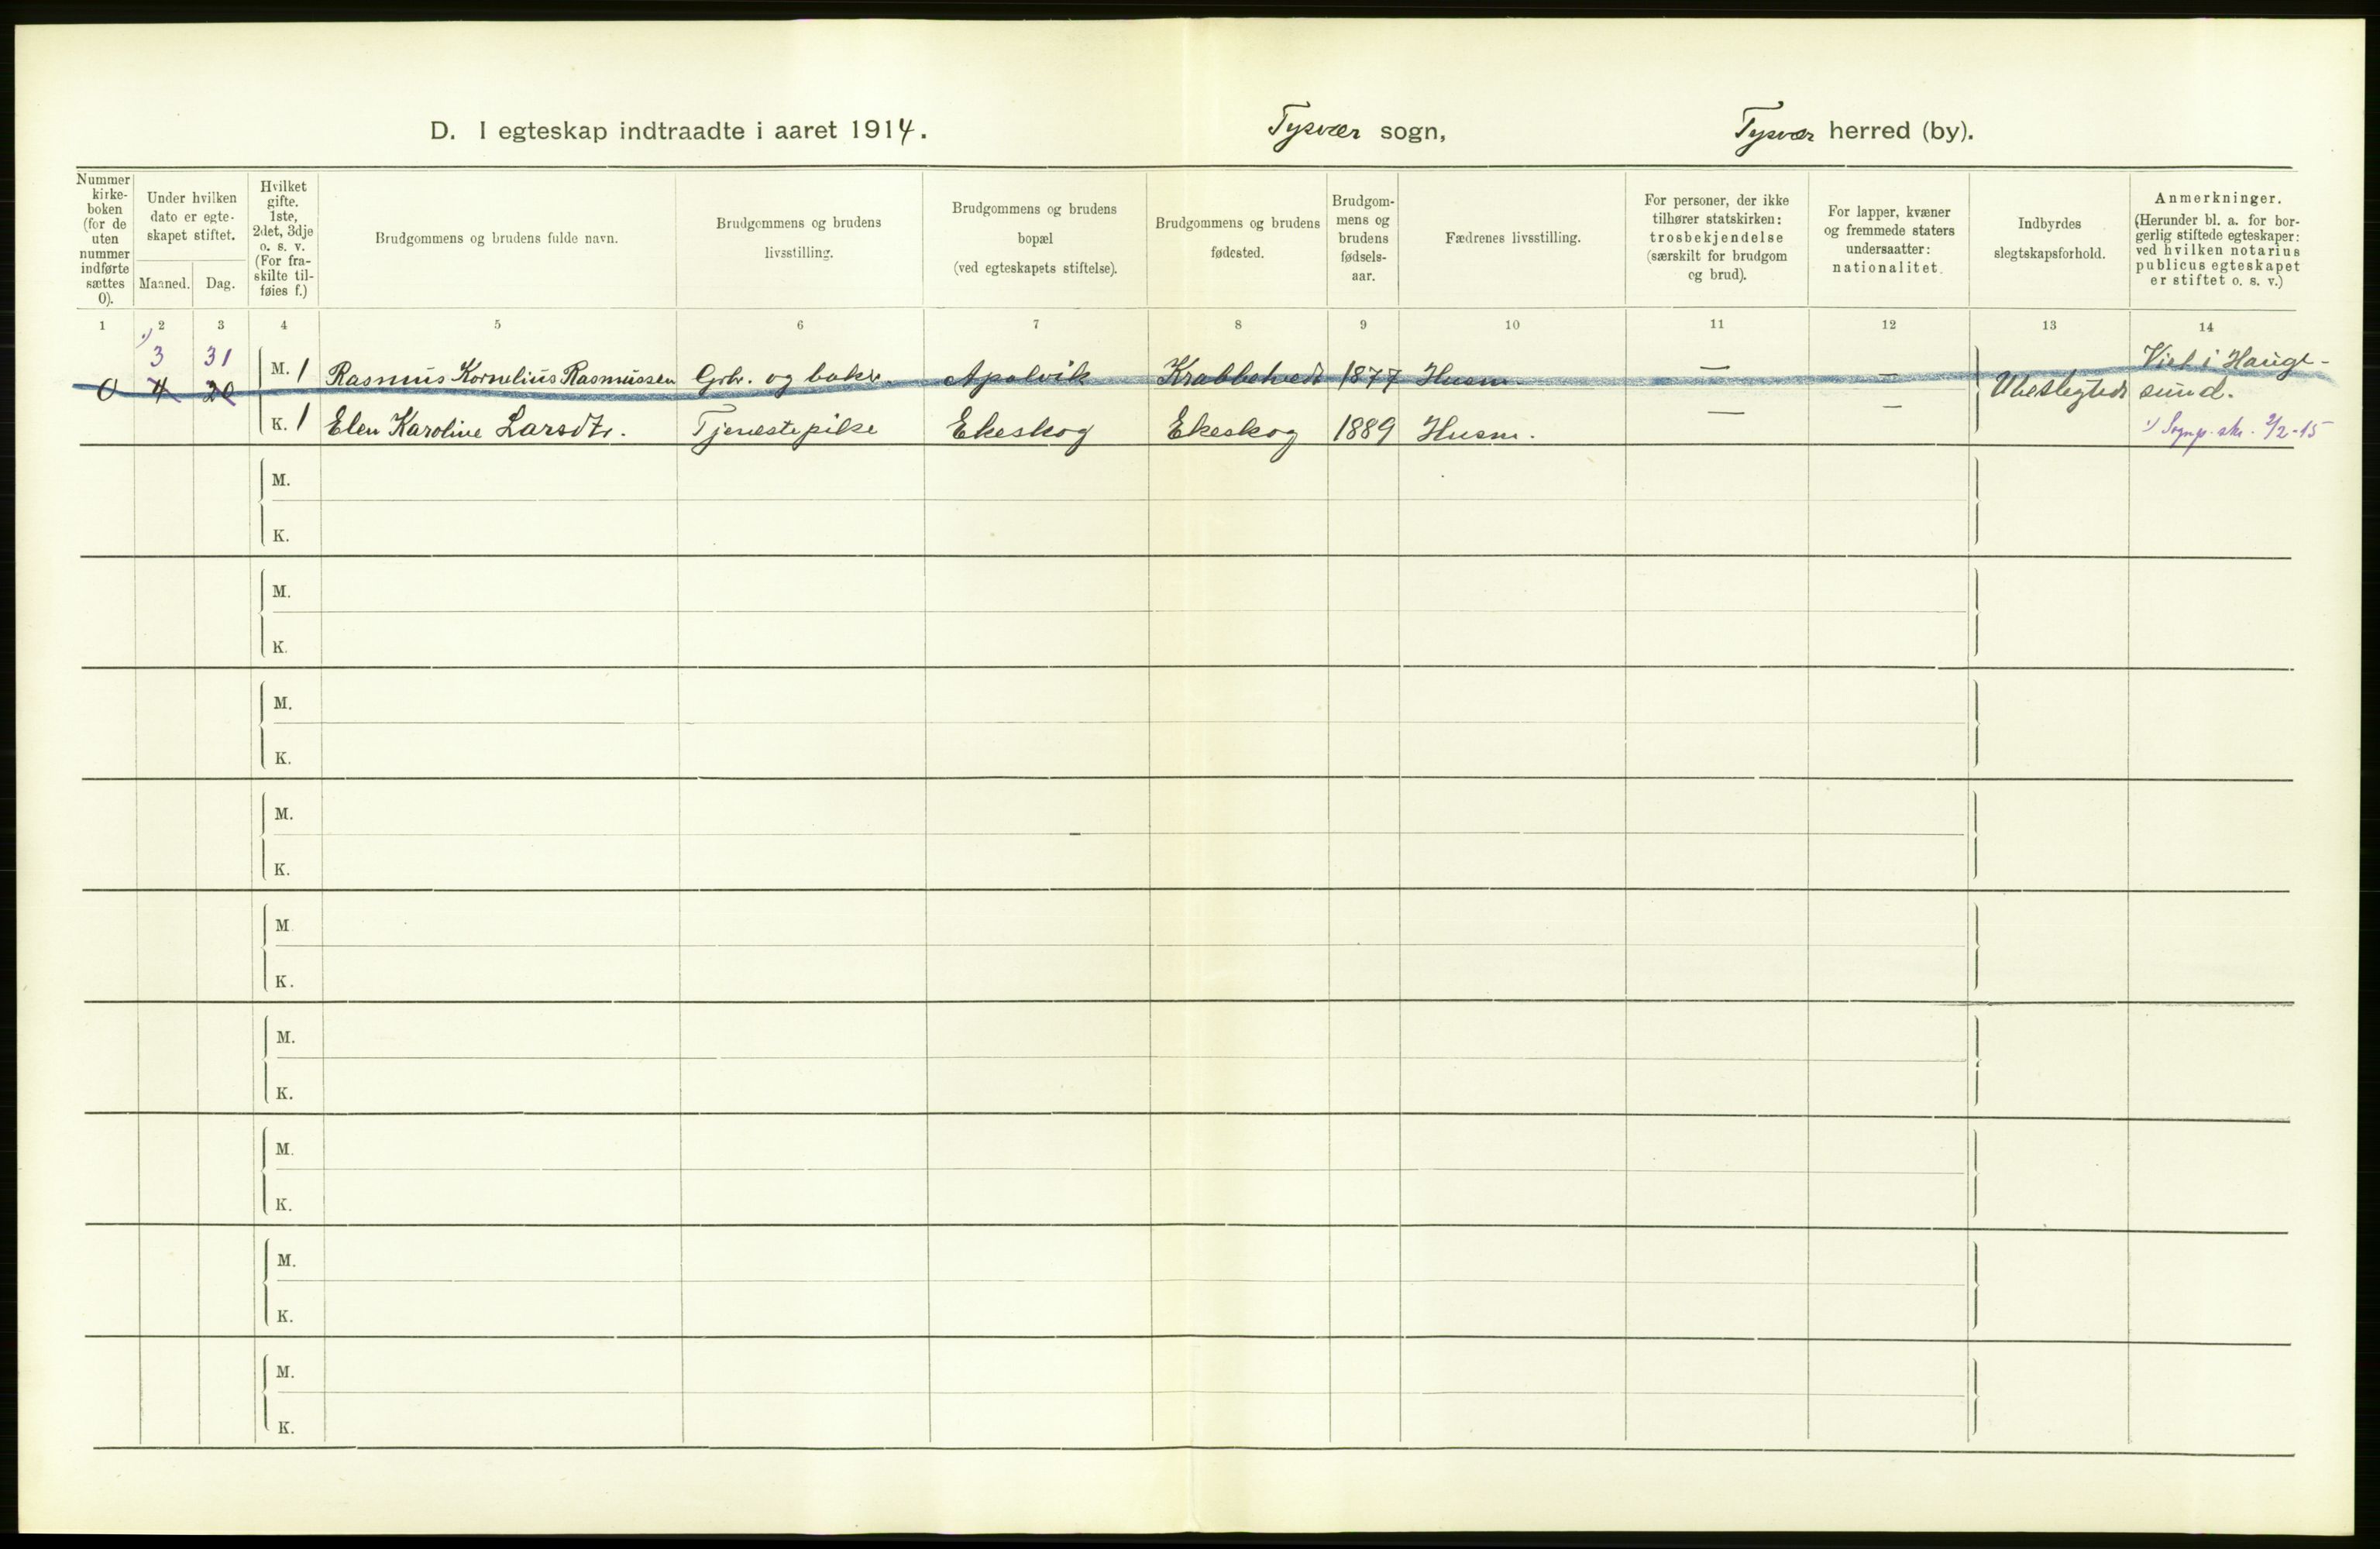 D. I egteskap indtraadte i aaret 1914. Tysvær sogn, Tysvær herred (by).
Nummer
kirke-
boken
(for de
uten
nummer
indførte
sættes
0).
Under hvilken
dato er egte-
skapet stiftet.
Maaned. Dag.
Hvilket
gifte.
1ste,
2det, 3dje
o. s. v.
(For fra-
skilte til-
føies f.)
Brudgommens og brudens fulde navn.
Brudgommens og brudens
livsstilling.
Brudgommens og brudens
bopæl
(ved egteskapets stiftelse).
Brudgommens og brudens
fødested.
Brudgom-
mens og
brudens
fødsels-
aar.
Fædrenes livsstilling.
For personer, der ikke
tilhører statskirken:
trosbekjendelse
(særskilt for brudgom
og brud).
For lapper, kvæner
og fremmede staters
undersaatter:
nationalitet.
Indbyrdes
slegtskapsforhold.
Anmerkninger.
(Herunder bl. a. for bor-
gerlig stiftede egteskaper:
ved hvilken notarius
publicus egteskapet
er stiftet o. s. v.)
1 2 3 4 5 6 7 8 9 10 11 12 13 14
¹) 3 31
0 4 20
M. 1 Rasmus Kornelius Rasmussen Grbr. og Apalvik 1877 Husm. — —
K. 1 Elen Karoline Larsdtr. Tjenestepike Ekeskog Ekeskog 1889 Husm. — —
Ubeslegtede
Viet i Hauge-
sund.
¹) Sognep. skr. 2/2-15
M.
K.
M.
K.
M.
K.
M.
K.
M.
K.
M.
K.
M.
K.
M.
K.
M.
K.